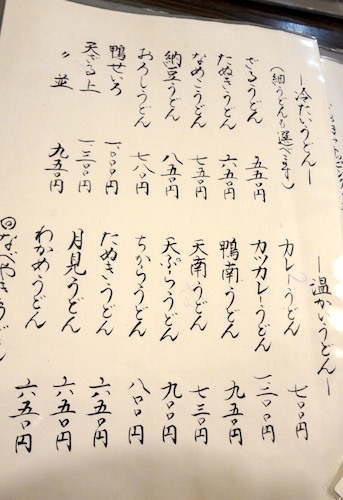 ―冷たいうどん―
(細うどんも選べます)
ざるうどん 五五〇円
たぬきうどん 六五〇円
なめこうどん 七五〇円
納豆うどん 八五〇円
おろしうどん 七八〇円
鴨せいろ 一、〇〇〇円
天ざる上 一、三〇〇円
〃 並 九五〇円
―温かいうどん―
カレーうどん 七〇〇円
カツカレーうどん 一、三〇〇円
鴨南うどん 九五〇円
天南うどん 七三〇円
天ぷらうどん 九〇〇円
ちからうどん 八〇〇円
たぬきうどん 六五〇円
月見うどん 六五〇円
わかめうどん 六五〇円
回なべやきうどん